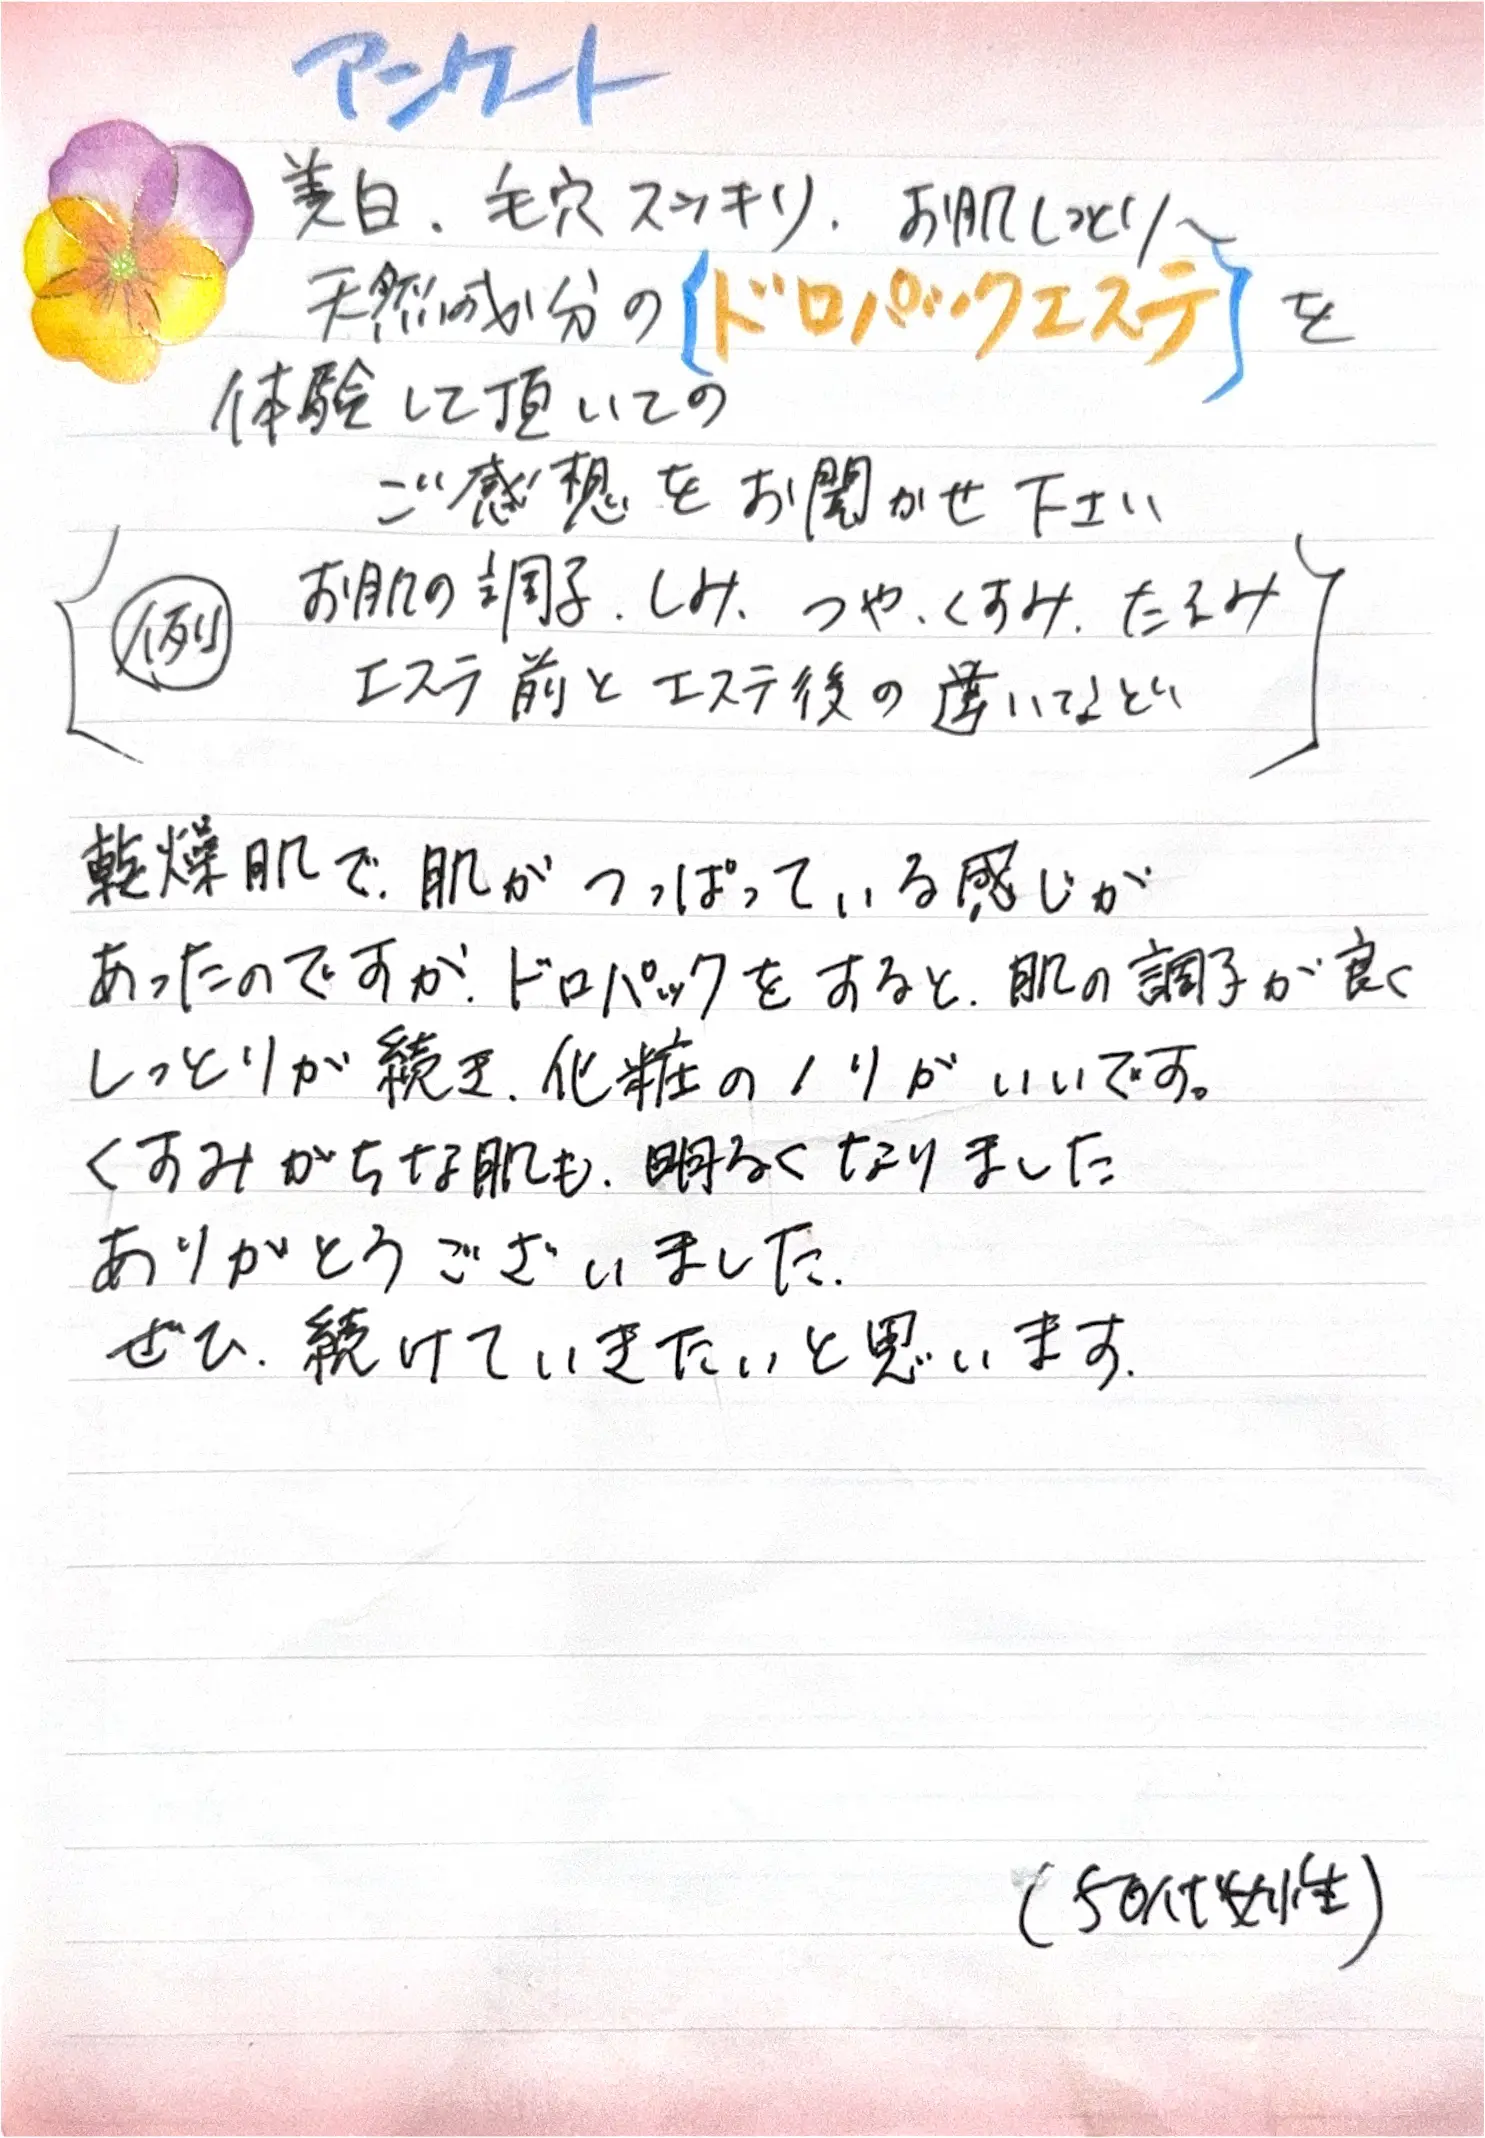 アンケート
美白、毛穴スッキリ、お肌しっとり〜
天然成分の{ドロパックエステ}を
体験して頂いての
ご感想をお聞かせ下さい
例 お肌の調子、しみ、つや、くすみ、たるみ
エステ前とエステ後の違いなど
乾燥肌で、肌がつっぱっている感じが
あったのですが、ドロパックをすると、肌の調子が良く
しっとりが続き、化粧のノリがいいです。
くすみがちな肌も、明るくなりました
ありがとうございました。
ぜひ、続けていきたいと思います。
(50代女性)